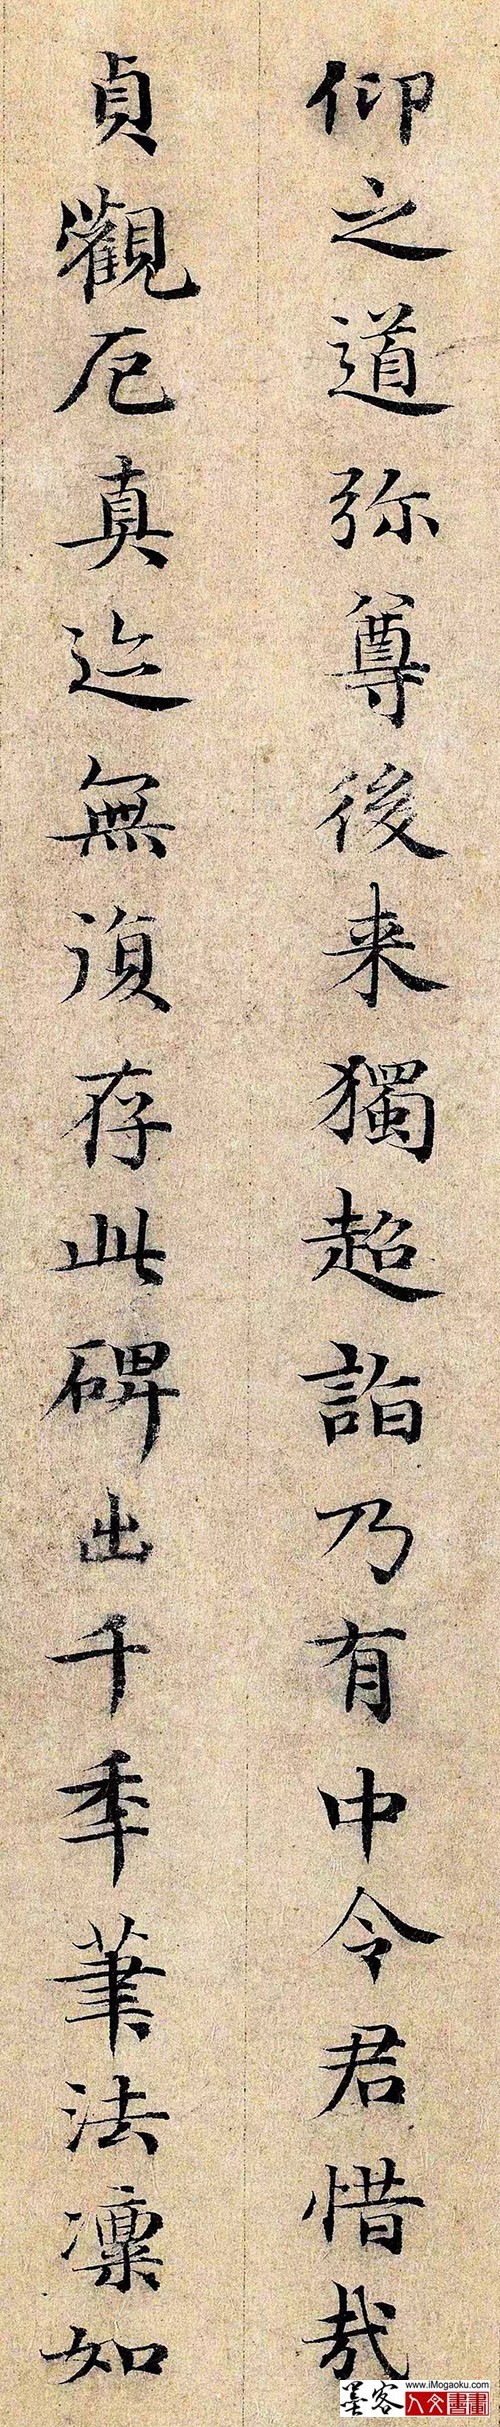 仰之道弥尊後来獨超詣乃有中令君惜哉
貞觀厄真迹無復存此碑出千年筆法凛如
墨客 www.iMogaoku.com
人文書畫